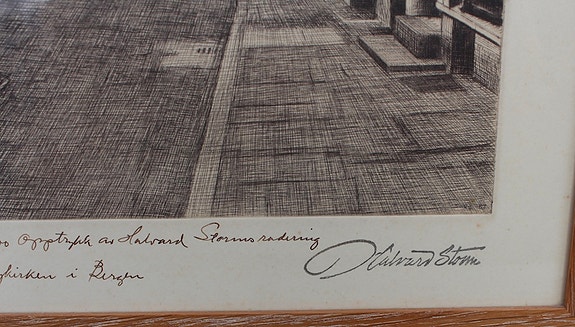 Opptrykk av Halvard Storms radering
i Bergen
Halvard Storm